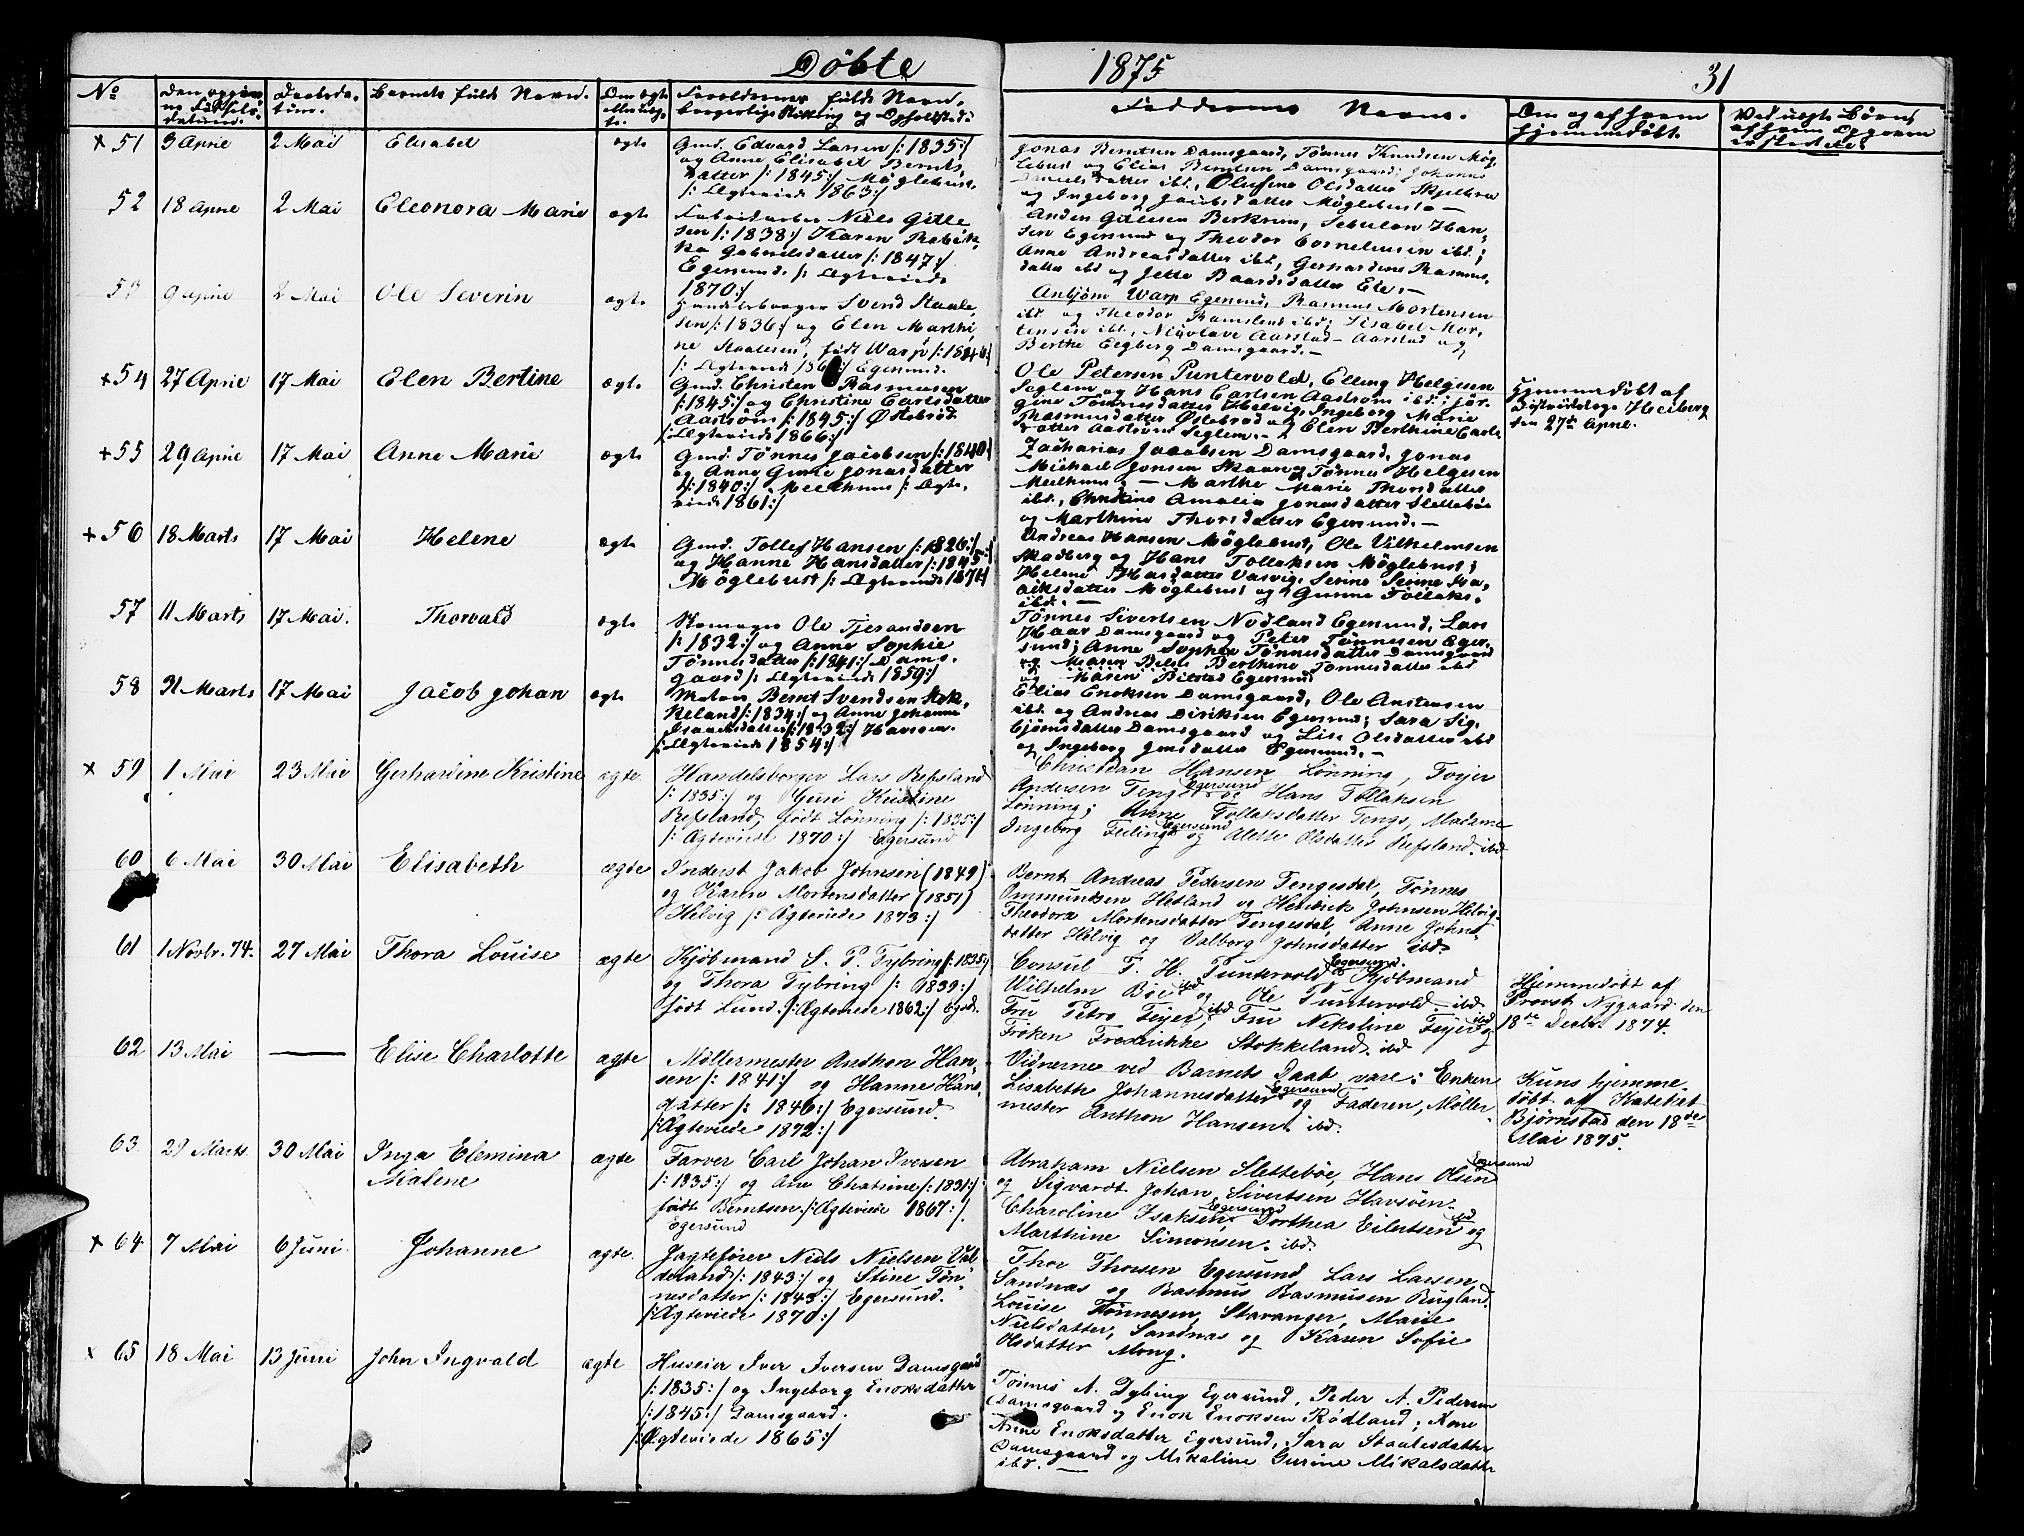 Döbte 1875 31
No
Barnets fulde Navn.
Faddernes Navne.
Om og af hvem
hjemmedöbt.
+ 51 3 April 2 Mai Elisabet ægte Gmd. Edvard Larsen /: 1835:/
og Anne Elisabet Bernts,
datter /: 1845:/ Möglebust.
/: Ægteviede 1863:/
Jonas Berntsen Damsgaard, Tønnes Knudsen Møg,
lebust og Elias Berntsen Damsgaard; Johanne
Danielsdatter ibd., Olufine Olsdatter Skjelbred
og Ingeborg Jacobsdatter Möglebust. —
52 18 April 2 Mai Eleonora Marie ægte Niels Gitle,
sen /: 1838:/ Karen Rebek,
ka Gabrielsdatter /: 1847:/
Egersund. /: Ægteviede
1870:/
Anden Gitlesen Berkrim, Sebulon Han,
sen Egersund og Theodor Corneliussen ibd;
Anne Andreasdatter ibd., Gerhardine Rasmus,
datter ibd og Jette Baardsdatter Eie. —
53 9 April 2 Mai Ole Severin ægte Handelsborger Svend Staale,
sen /: 1836:/ og Elen Marthi,
ne Staalesen, født Warp /: 1846:/
/: Ægteviede Egersund.
Anbjørn Warp Egersund, Rasmus Mortensen
ibd. og Theodor Ramsland ibd; Lisabet Mor,
tensen ibd., Nicolave Aarstad Aarstad og
Berthe Eegberg Damsgaard. —
+ 54 27 April 17 Mai Elen Bertine ægte Gmd. Christen Rasmusen
/: 1845:/ og Christine Carlsdatter
Aadsøm /: 1845:/ Østebröd.
/: Ægteviede 1866:/
Ole Petersen Puntervold, Elling Helgesen
Seglem og Hans Carlsen Aastrom ibd.; Jør,
gine Tønnesdatter Helvig, Ingeborg Marie
Rasmusdatter Østebröd og Elen Berthine Carls,
datter Seglem. —
Hjemmedöbt af
Distriktslæge Heiberg
den 27de April.
+ 55 29 April 17 Mai Anne Marie ægte Gmd. Tønnes Jacobsen /: 1840:/
og Anne Gurie Jonasdatter
/: 1840:/ Meelhuus /: Ægte,
viede 1861:/
Zacharias Jacobsen Damsgaard, Jonas
Michael Jonsen Skaar og Tønnes Helgesen
Meelhuus; — Marthe Marie Thorsdatter
ibd., Christine Amalia Jonasdatter Slettebøe
og Marthine Thorsdatter Egersund. —
+ 56 18 Marts 17 Mai Helene ægte Gmd. Tollef Hansen /: 1826:/
og Hanne Hansdatter /: 1845:/
Möglebust /: Ægteviede 1871:/
Andreas Hansen Möglebust, Ole Vilhelmsen
Skadberg og Hans Tollaksen Möglebust;
Helene Hansdatter Vasvig, Serine Serine Isa,
aksdatter Möglebust og Gunne Tollaks.
ibd. —
57 11 Marts 17 Mai. Thorvald ægte Skomager Ole Tjerandsen
/: 1832:/ og Anne Sophie
Tønnesdatter /: 1841:/ Dams,
gaard /: Ægteviede 1859:/
Tønnes Sivertsen Nodland Egersund, Lars
Haar Damsgaard og Peter Tønnesen Eger,
sund; Anne Sophie Tønnesdatter Damsgaard
Berthine Tønnesdatter ibd
og Maren Bilstad Egersund
58 31 Marts 17 Mai Jacob Johan ægte Matros Bernt Svendsen Stok,
keland /: 1834:/ og Anne Johanne
Isaacsdatter /: 1832:/ Havsøen.
/: Ægteviede 1854:/
Elias Enoksen Damsgaard, Ole Anstensen
ibd. og Andreas Diriksen Egersund; Sara Sig,
bjørnsdatter Damsgaard og Lise Olsdatter ibd
og Ingeborg Omsdatter Egersund. —
+ 59 1 Mai 23 Mai Gerhardine Kristine ægte Handelsborger Lars Refsland
/: 1835:/ og Guri Kristine
Refsland, født Lönning /: 1835:/
/: Ægteviede 1870:/ Egersund
Christian Hansen Lönning, Tojer
Andersen Tengs Egersund Hans Tollaksen
Lönning; Anne Tollaksdatter Tengs, Madame
Ingeborg Feiling Egersund og Alette Olsdatter Refsland. ibd
60 6 Mai 30 Mai Elisabeth ægte Inderst Jakob Johnsen (1849)
og Karen Mortensdatter (1851)
Helvig /: Ægteviede 1873:/
Bernt Andreas Pedersen Tengesdal, Tönnes
Ommundsen Hetland og Hendrik Johnsen Helvig
Theodora Mortensdatter Tengesdal, Anne Johns,
datter Helvig og Valborg Johnsdatter ibd.
61 1 Novbr. 74. 27 Mai Thora Louise ægte Kjöbmand S. P. Tybring /: 1835:/
og Thora Tybring /: 1839:/
født Lund. /: Ægteviede 1862:/ Egsd.
Consul T. H. Puntervold Egersund. Kjöbmand
Wilhelm Böe ibd og Ole Puntervold ibd
Fru Petra Feyer, ibd Fru Nekoline Feyer ibd og
Fröken Fredrikke Stokkeland. ibd
Hjemmedöbt af
Provst Nygaard den
18de Decbr 1874.
62 13 Mai — Elise Charlotte ægte Möllermester Anthon Han,
sen /: 1841:/ og Hanne Hans,
datter /: 1846:/ Egersund.
/: Ægteviede 1872:/
Vidnerne ved Barnets Daab vare: Enken
Lisabeth Johannesdatter Egersund og Faderen, Möller,
mester Anthon Hansen. ibd.
Kuns hjemme,
döbt af Kateket
Bjørnstad den 18de
Mai 1875.
63 29 Marts 30 Mai Inga Elemina
Malene ægte Farver Carl Johan Iversen
/: 1835:/ og Ane Chatrine /: 1831:/
født Berntsen. /: Ægteviede 1867:/.
Egersund
Abraham Nielsen Slettebøe, Hans Olsen Egersund
og Sigvardt Johan Sivertsen Havsöen.
Charoline Isaksen, Egersund Dorthea Eilertsen ibd og
Marthine Simonsen. ibd.
+ 64 7 Mai 6 Juni Johanne ægte Jagtefører Niels Nielsen Val,
deland /: 1843:/ og Stine Tøn,
nesdatter /: 1843:/ Egersund.
/: Ægteviede 1870:/
Thor Thorsen Egersund, Lars Larsen
Sandnas og Rasmus Rasmusen Rugland.
Louise Tönnesen, Stavanger, Marie
Nielsdatter, Sandnas og Karen Sofie
Olsdatter Mong.
x 65 18 Mai 13 Juni John Ingvald ægte Huseier Iver Iversen Damsgaard
/: 1835:/ og Ingeborg Enoksdatter
/: 1845:/ Damsgaard.
/: Ægteviede 1865:/
Tönnes A. Dybing Egersund, Peder A. Pedersen
Damsgaard og Enok Enoksen Rödland; Kone
Anne Enoksdatter Egersund, Sara Staalesdatter
Damsgaard og Mikaline Gurine Mikalsdatter
ibd. —